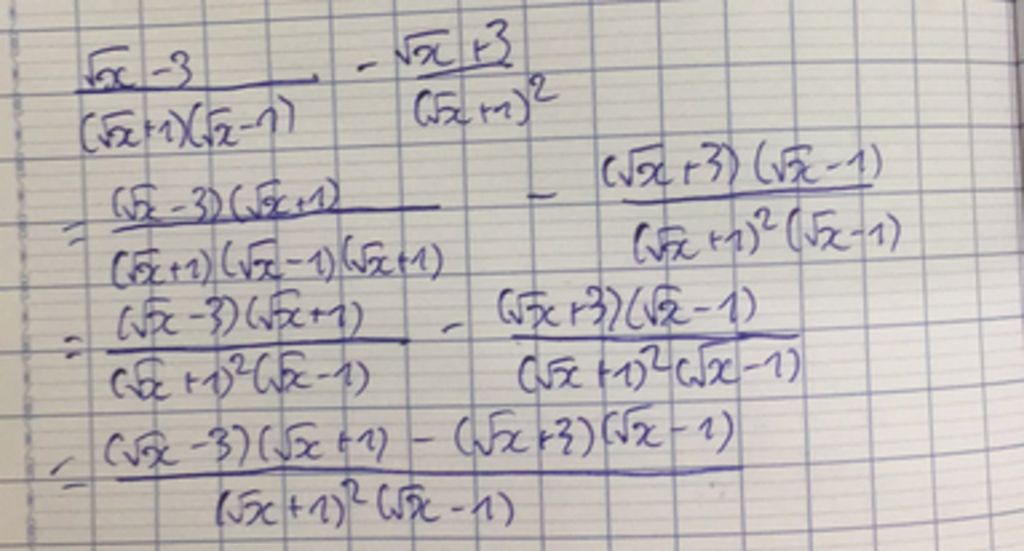 (√x - 3)/((√x+1)(√x-1)) - (√x+3)/((√x+1)²)
= ((√x-3)(√x+1))/((√x+1)(√x-1)(√x+1)) - ((√x+3)(√x-1))/((√x+1)²(√x-1))
= ((√x-3)(√x+1))/((√x+1)²(√x-1)) - ((√x+3)(√x-1))/((√x+1)²(√x-1))
= ((√x-3)(√x+1) - (√x+3)(√x-1))/((√x+1)²(√x-1))